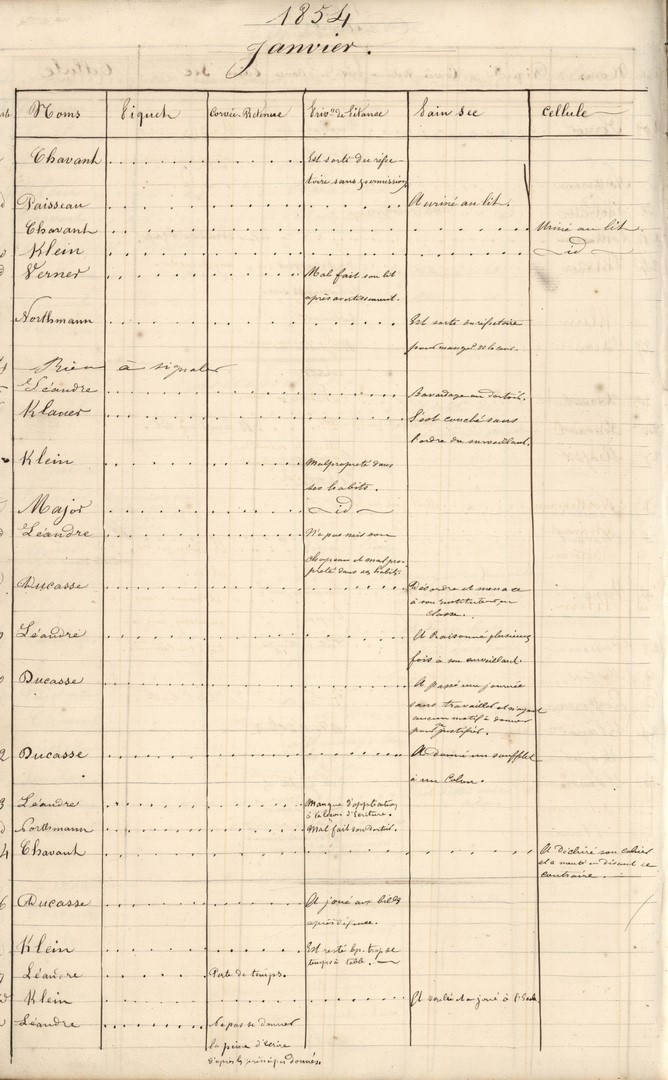 1854
Janvier.
Noms Piquet Corvée Retenue Priv.on de Pitance Pain sec Cellule
Chavant Est sorti du réfec-
toire sans permission
Paisseau A uriné au lit.
Chavant Uriné au lit.
Klein id
Verner Mal fait son lit
après avertissement.
Northmann Est sorti du réfectoire
pour manger
4 Rien à signaler
Léandre Bavardage au dortoir.
Klauer S'est couché sans
l'ordre du surveillant.
Klein Malpropreté dans
ses habits.
Major id
Léandre N'a pas mis son
chapeau et malpro-
preté dans ses habits.
Ducasse Désordre et menace
à son instituteur en
classe.
Léandre A Raisonné plusieurs
fois à son surveillant.
Ducasse A passé une journée
sans travailler et n'ayant
aucun motif à donner
pour justifier.
2 Ducasse A donné un soufflet
à un Colon.
3 Léandre Manque d'application
à la leçon d'écriture.
d Northmann Mal fait son dortoir.
4 Chavant A déchiré son cahier
et a menti en disant le
contraire.
6 Ducasse A joué aux billes
après défense.
Klein Est resté trop de
temps à table.
7 Léandre Perte de temps.
Klein joué à
Léandre Ne pas se donner
la peine d'écrire
d'après les principes donnés